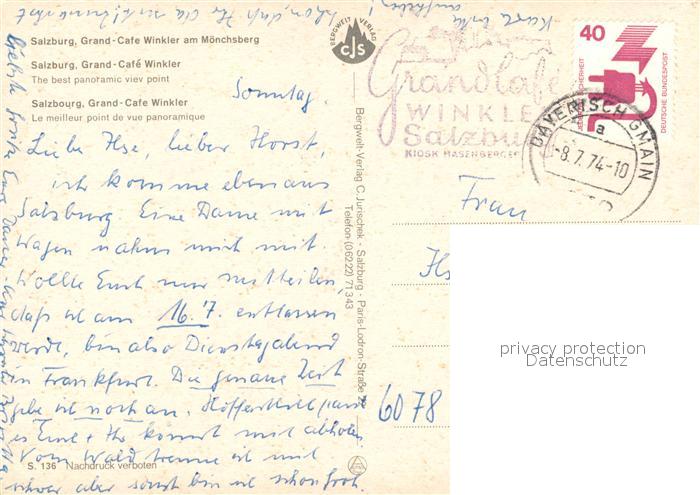 Salzburg, Grand-Cafe Winkler am Mönchsberg
Salzburg, Grand-Café Winkler
The best panoramic viev point
Salzbourg, Grand-Cafe Winkler
Le meilleur point de vue panoramique
Sonntag
Liebe Ilse, lieber Horst,
ich komme eben aus
Salzburg. Eine Dame mit
Wagen nahm mich mit.
Wollte Euch nur mitteilen,
daß ich am 16.7. entlassen
werde, bin also Dienstagabend
in Frankfurt. Die genaue Zeit
gebe ich noch an. Hoffentlich passt
es Euch + Ihr kommt mit abholen.
Vom Wald trenne ich mich
schwer aber sonst bin ich schon froh.
S. 136 Nachdruck verboten
schon, daß Ihr da seid
BERGWELT VERLAG
CJS
Bergwelt-Verlag C. Jurischek - Salzburg - Paris-Lodron-Straße 22
Telefon (06222) 71343
Grand Café
WINKLER
Salzburg
KIOSK HASENBERGER
40
JEDERZEIT SICHERHEIT
DEUTSCHE BUNDESPOST
BAYERISCH GMAIN
a
-8.7.74-10
Frau
6078
privacy protection
Datenschutz